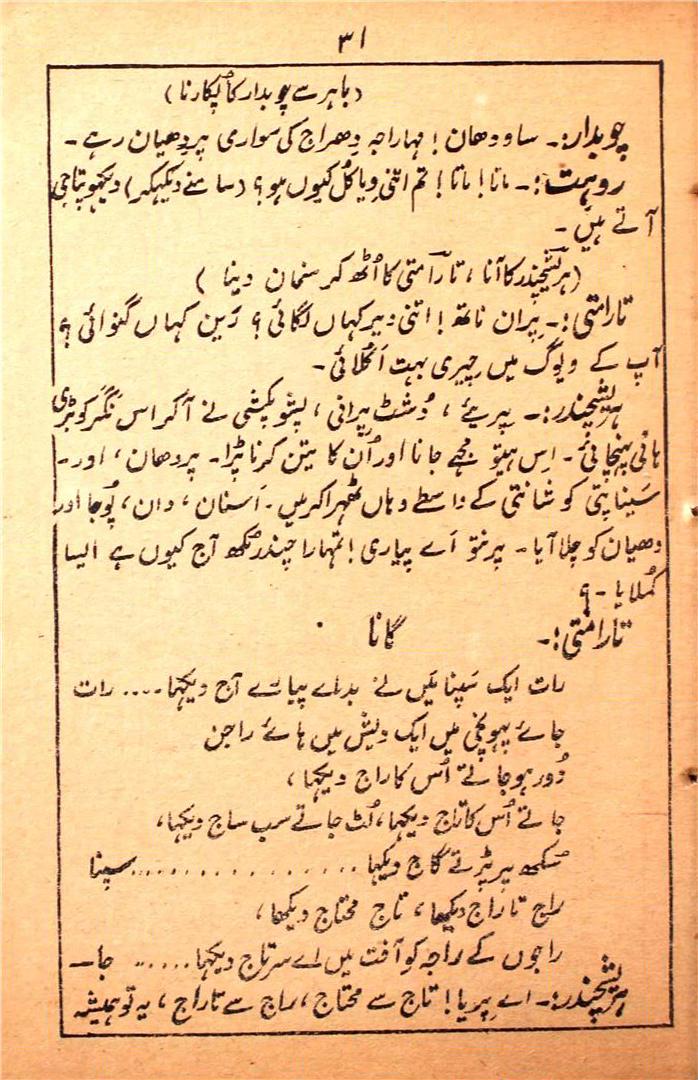 ۳۱
(باہر سے چوبدار کا پکارنا)
چوبدار:۔ ساودھان! مہاراجہ دِھراج کی سواری پر دِھیان رہے۔
روہت:۔ ماتا! ماتا! تم اتنی وِیاکُل کیوں ہو؟ (سامنے دیکھکر) دیکھو پتاجی
آتے ہیں۔
(ہریشچندر کا آنا، تارامتی کا اُٹھ کر سنمان دینا)
تارامتی:۔ پران ناتھ! اتنی دیر کہاں لگائی؟ رَین کہاں گنوائی؟
آپ کے ویوگ میں چیری بہت اَکُلائی۔
ہریشچندر:۔ پریئے، دُشٹ پرانی، پشو پکشی نے آکر اس نگر کو بڑی
ہانی پہنچائی۔ اِس ہیتو مجھے جانا اور اُن کا یتن کرنا پڑا۔ پردھان، اور۔
سَیناپتی کو شانتی کے واسطے وہاں ٹھہرا کر میں۔ اَسنان، دان، پُوجا اور
دھیان کو چلا آیا۔ پرنتو اَے پیاری! تمہارا چندر مُکھ آج کیوں ہے ایسا
کُملایا۔؟
تارامتی:۔ گانا
رات ایک سَپنا مَیں نے اے پیارے آج دیکھا.... رات
جائے پہونچی میں ایک دیش میں ہائے راجن
دُور ہو جاتے اُس کا راج دیکھا،
جاتے اُس کا تاج دیکھا، لُٹ جاتے سب ساج دیکھا،
سُکھ پر پڑتے گاج دیکھا ............... سپنا
راج تاراج دیکھا، تاج محتاج دیکھا،
راجوں کے راجہ کو آفت میں اے سرتاج دیکھا..... جا۔
ہریشچندر:۔ اے پریا! تاج سے محتاج، راج سے تاراج، یہ تو ہمیشہ